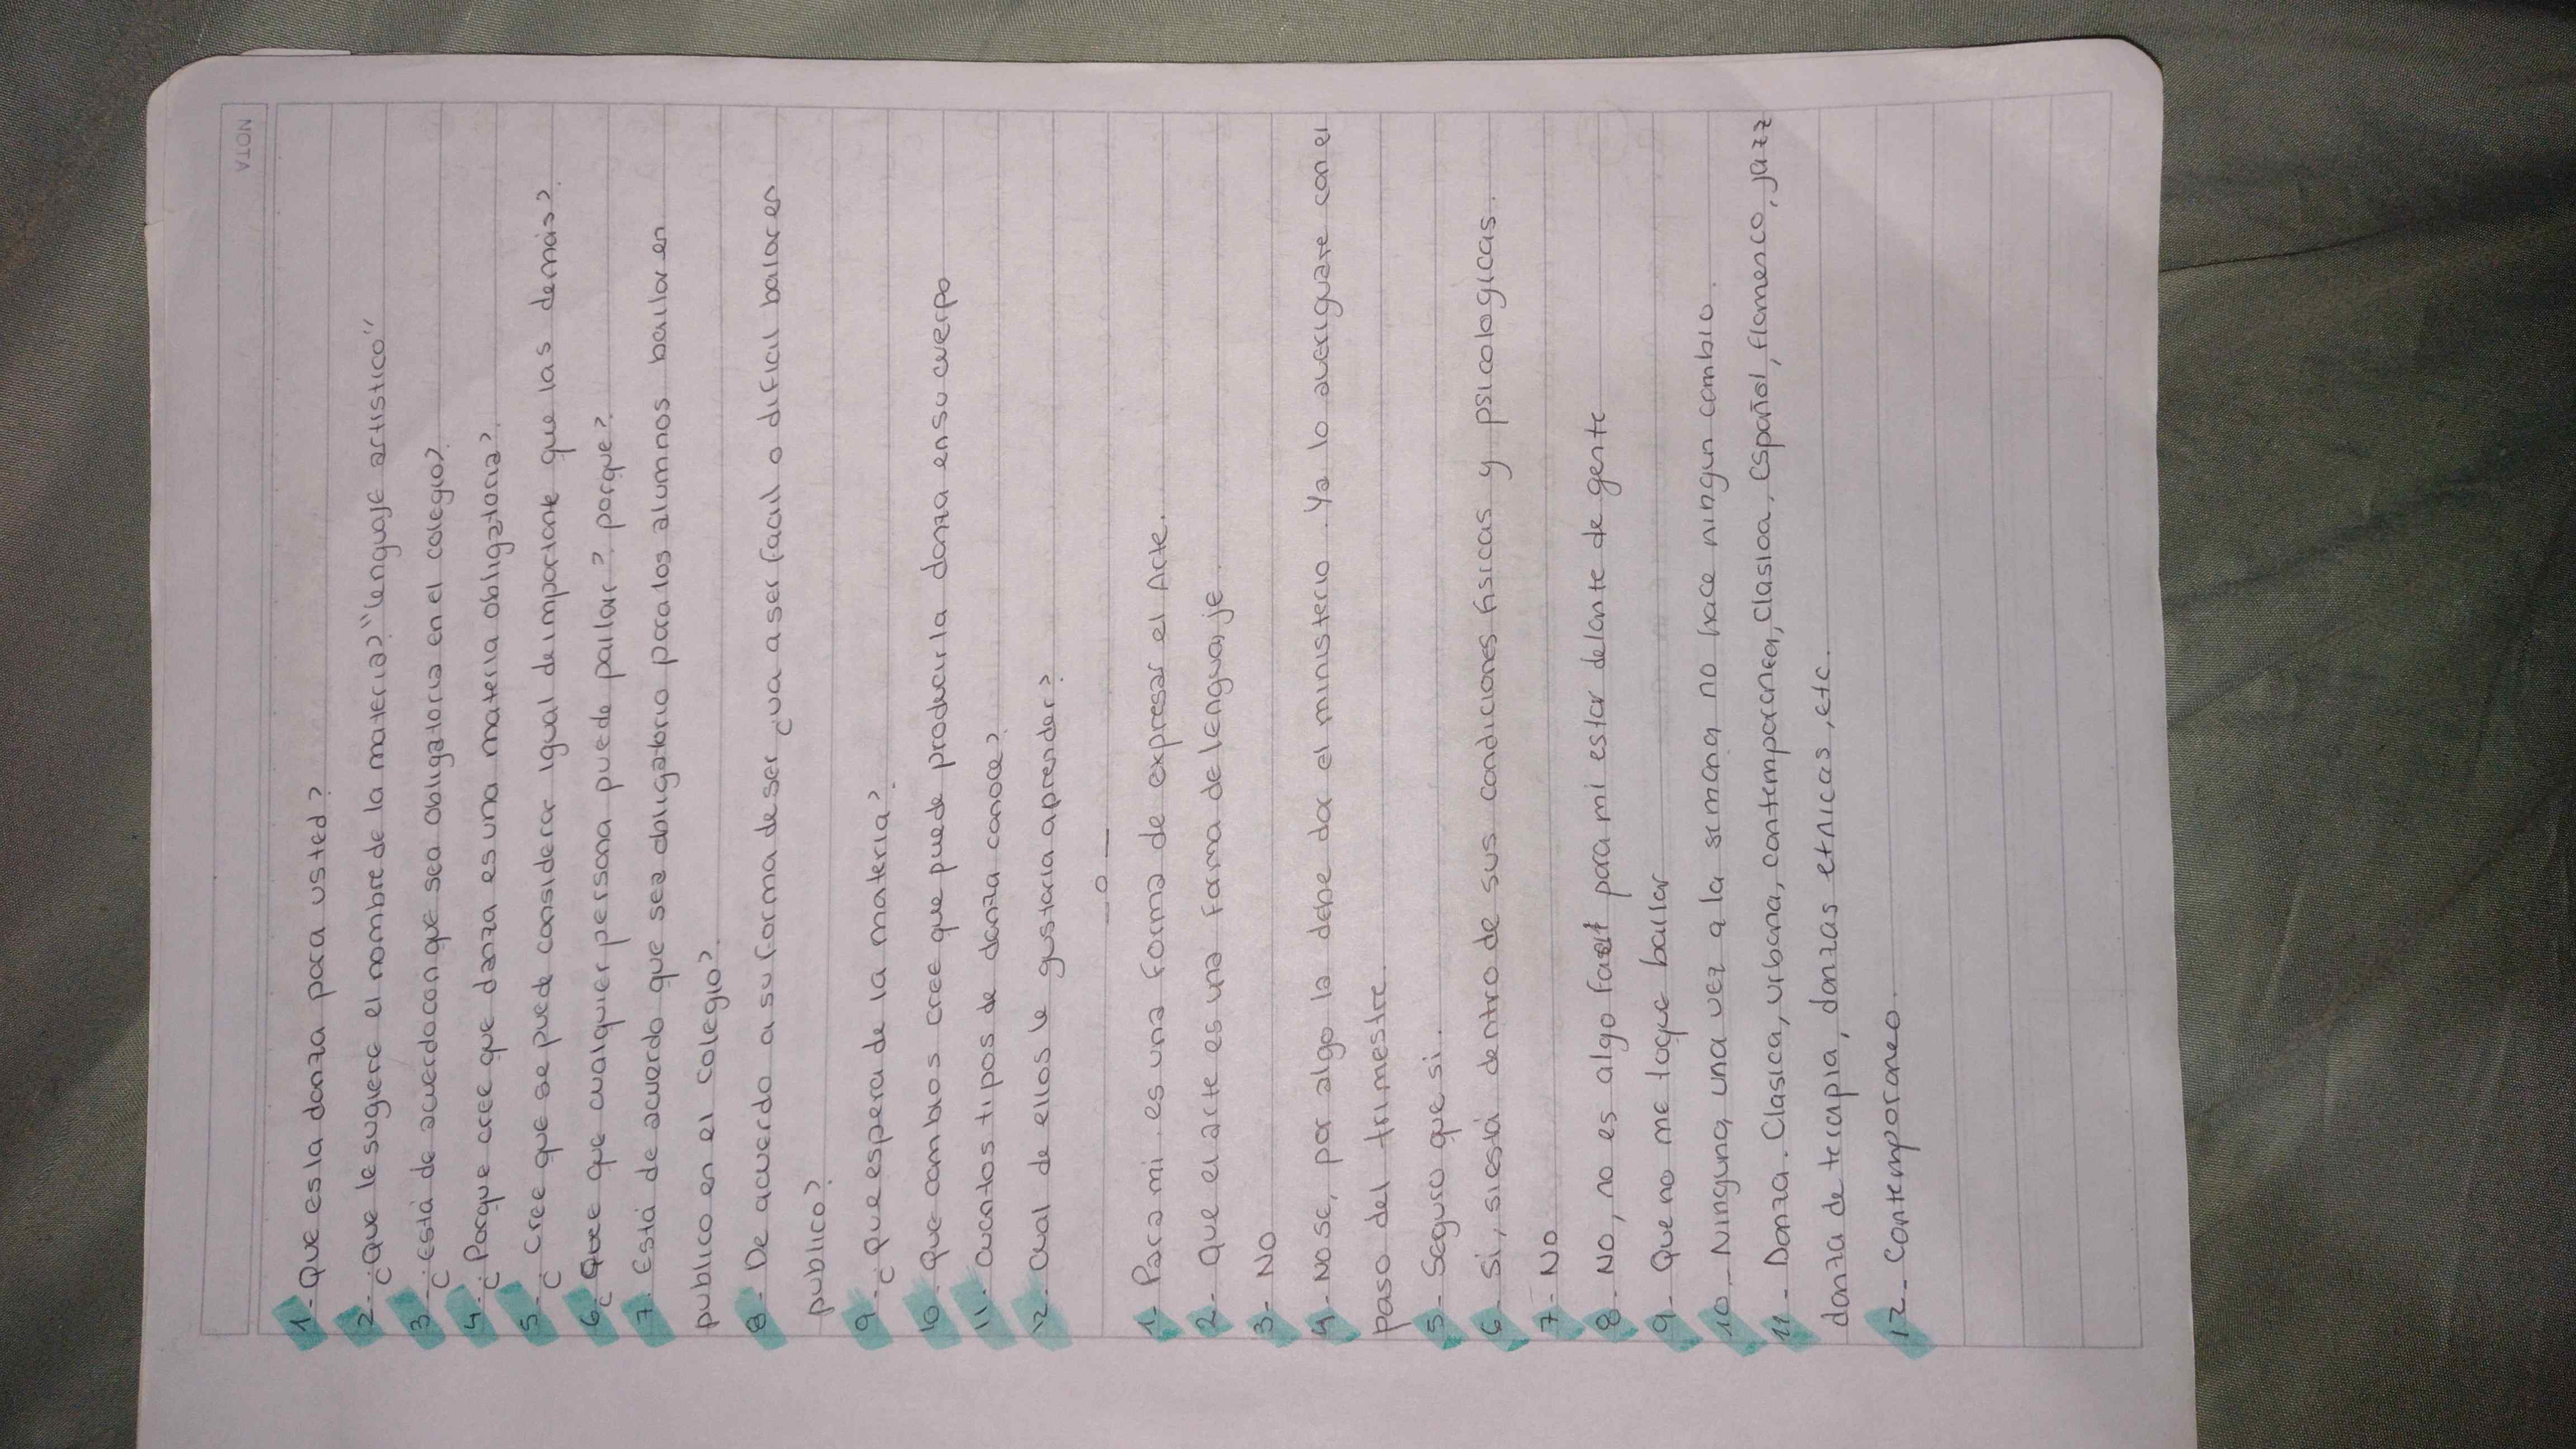 NOTA
1- Que es la danza para usted?
2- ¿Que le sugiere el nombre de la materia? "lenguaje artistico"
3- ¿Está de acuerdo con que sea obligatoria en el colegio?
4- ¿Porque cree que danza es una materia obligatoria?
5- ¿Cree que se puede considerar igual de importante que las demás?
6- ¿Cree que cualquier persona puede pailar?, porque?
7- Está de acuerdo que sea obligatorio para los alumnos bailar en
publico en el colegio?
8- De acuerdo a su forma de ser ¿va a ser facil o dificil balar en
publico?
9- ¿Que espera de la materia?
10- Que cambios cree que puede producir la danza en su cuerpo
11- Cuantos tipos de danza conoce?
12- Cual de ellos le gustaria aprender?
—o—
1- Para mi, es una forma de expresar el Arte.
2- Que el arte es una forma de lenguaje.
3- NO
4- No se, por algo la debe dar el ministerio. Ya lo averiguare con el
paso del trimestre.
5- Seguro que si.
6- Si, si está dentro de sus condiciones fisicas y psicologicas.
7- NO
8- NO, no es algo facil para mi estar delante de gente
9- Que no me toque bailar
10- Ninguna, una vez a la semana no hace ningun cambio.
11- Danza. Clasica, urbana, contemporanea, clasica, español, flamenco, jazz
danza de terapia, danzas etnicas, etc.
12- Contemporaneo.